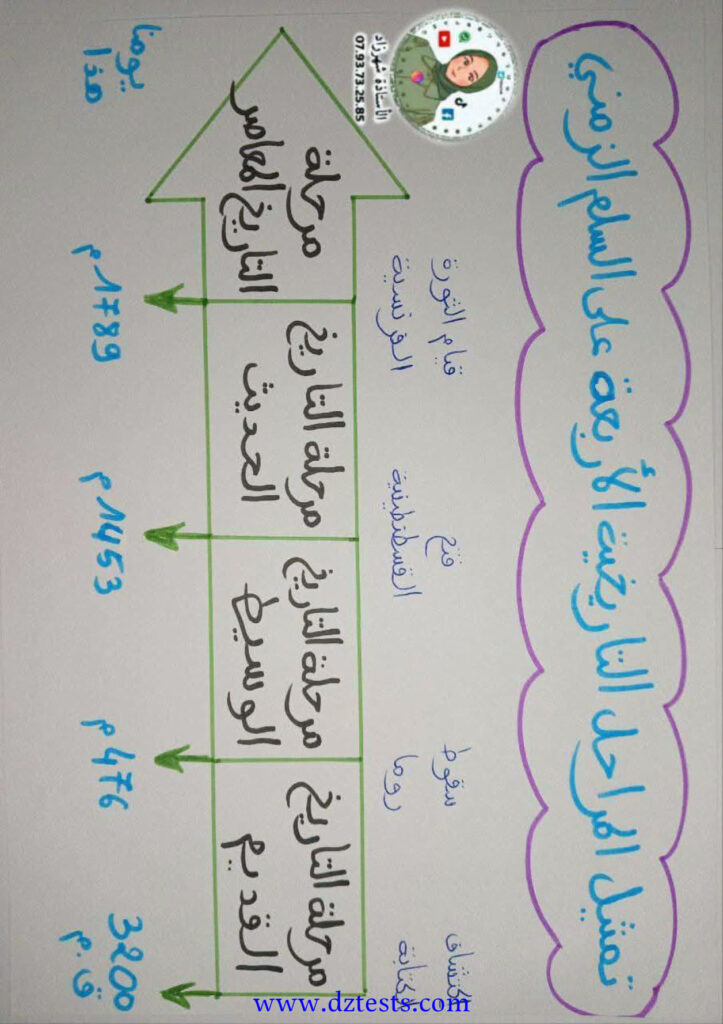 تمثيل المراحل التاريخية الأربعة على السلم الزمني
الأستاذة شهرزاد
07.93.73.25.85
اكتشاف
الكتابة
سقوط
روما
فتح
القسطنطينية
قيام الثورة
الفرنسية
مرحلة التاريخ
القديم
مرحلة التاريخ
الوسيط
مرحلة التاريخ
الحديث
مرحلة
التاريخ المعاصر
3200
ق.م
476 م
1453 م
1789 م
يومنا
هذا
www.dztests.com